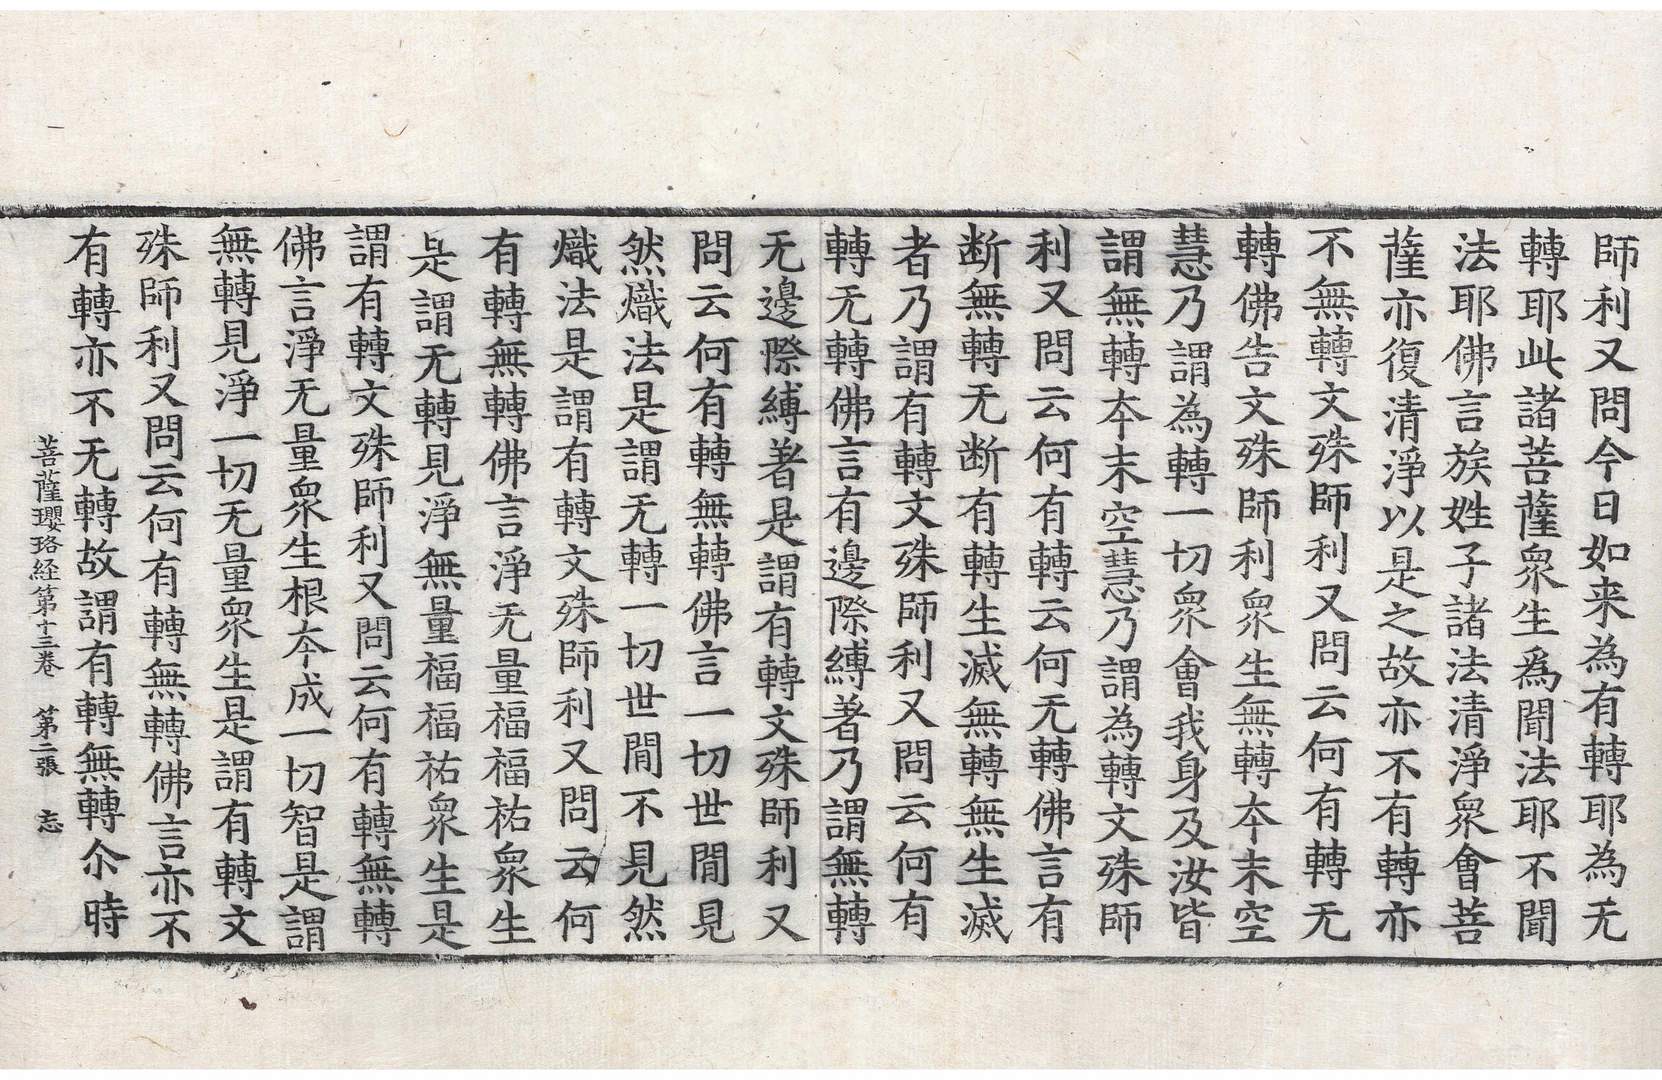 師利又問今日如来為有轉耶為无
轉耶此諸菩薩衆生為聞法耶不聞
法耶佛言族姓子諸法清淨衆會菩
薩亦復清淨以是之故亦不有轉亦
不無轉文殊師利又問云何有轉无
轉佛告文殊師利衆生無轉夲末空
慧乃謂為轉一切衆會我身及汝皆
謂無轉夲末空慧乃謂為轉文殊師
利又問云何有轉云何无轉佛言有
断無轉无断有轉生滅無轉無生滅
者乃謂有轉文殊師利又問云何有
轉无轉佛言有邊際縛著乃謂無轉
无邊際縛著是謂有轉文殊師利又
問云何有轉無轉佛言一切世間見
然熾法是謂无轉一切世間不見然
熾法是謂有轉文殊師利又問云何
有轉無轉佛言淨无量福福祐衆生
是謂无轉見淨無量福福祐衆生是
謂有轉文殊師利又問云何有轉無轉
佛言淨无量衆生根夲成一切智是謂
無轉見淨一切无量衆生是謂有轉文
殊師利又問云何有轉無轉佛言亦不
有轉亦不无轉故謂有轉無轉尒時
菩薩瓔珞経第十三卷 第二張 忘